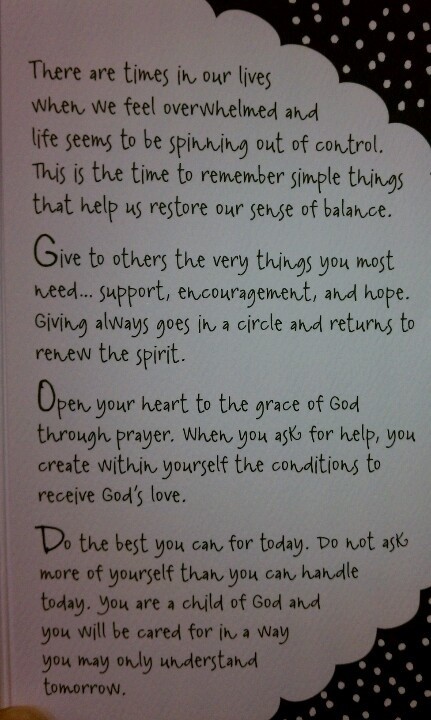 There are times in our lives
when we feel overwhelmed and
life seems to be spinning out of control.
This is the time to remember simple things
that help us restore our sense of balance.
Give to others the very things you most
need... support, encouragement, and hope.
Giving always goes in a circle and returns to
renew the spirit.
Open your heart to the grace of God
through prayer. When you ask for help, you
create within yourself the conditions to
receive God's love.
Do the best you can for today. Do not ask
more of yourself than you can handle
today. You are a child of God and
you will be cared for in a way
you may only understand
tomorrow.